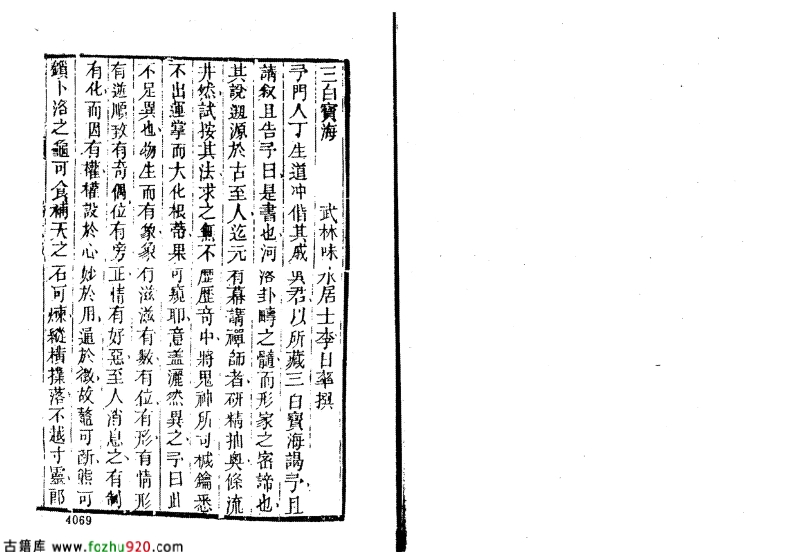 三白寶海
武林味水居士李日華撰
予門人丁生道冲偕其戚吳君以所藏三白寶海謁予且
請叙且告予曰是書也河洛卦疇之髓而形家之密諦也
其說遡源於古至人迄元有幕講禪師者研精抽奥條流
井然試按其法求之無不歷歷奇中將鬼神所司椷鑰悉
不出運掌而大化根蒂果可窺耶意盖灑然異之予曰此
不足異也物生而有象象有滋滋有數有位有形有情形
有逆順致有奇偶位有旁正情有好惡至人消息之有制
有化而因有權權設於心妙於用逼於微故鼇可斷熊可
鎖卜洛之龜可食補天之石可煉縱橫揲落不越寸靈郎
4069
古籍库 www.fozhu920.com